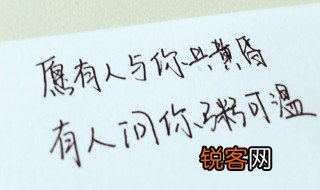 愿有人与你共黄昏
有人问你粥可温
锐客网